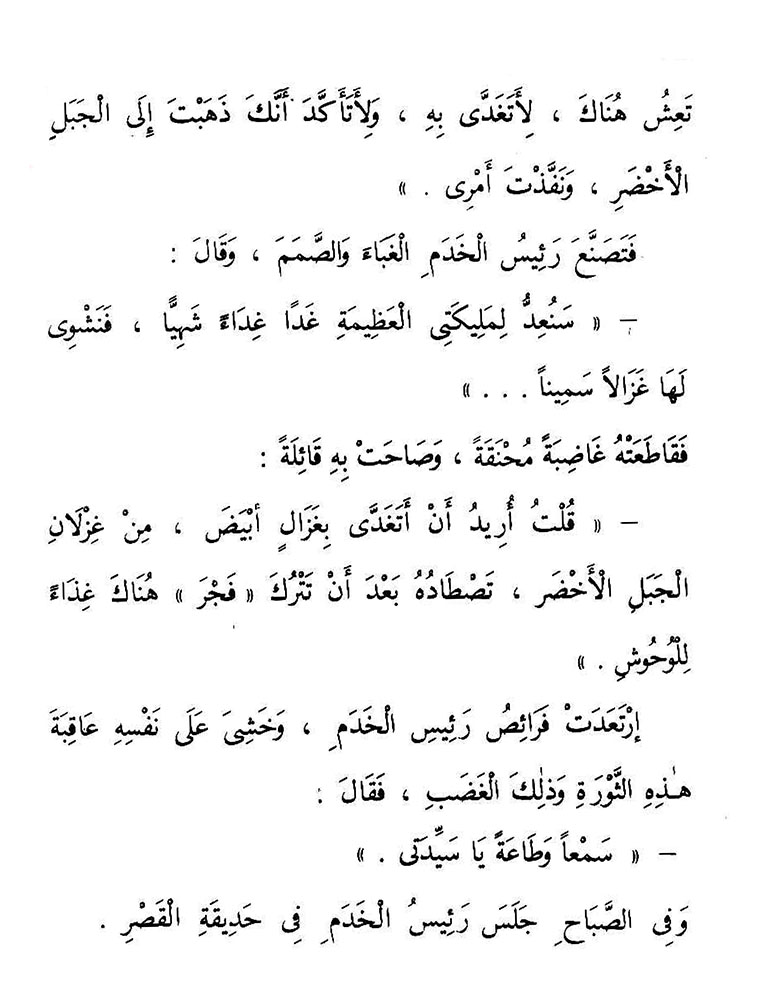 تَعِشُ هُنَاكَ ، لِأَتَغَدَّى بِهِ ، وَلِأَتَأَكَّدَ أَنَّكَ ذَهَبْتَ إِلَى الْجَبَلِ
الْأَخْضَرِ ، وَنَفَّذْتَ أَمْرِى . »
فَتَصَنَّعَ رَئِيسُ الْخَدَمِ الْغَبَاءَ وَالصَّمَمَ ، وَقَالَ :
– « سَنُعِدُّ لِمَلِيكَتِى الْعَظِيمَةِ غَدًا غِدَاءً شَهِيًّا ، فَنَشْوِى
لَهَا غَزَالاً سَمِيناً . . . »
فَقَاطَعَتْهُ غَاضِبَةً مُحْنَقَةً ، وَصَاحَتْ بِهِ قَائِلَةً :
– « قُلْتُ أُرِيدُ أَنْ أَتَغَدَّى بِغَزَالٍ أَبْيَضَ ، مِنْ غِزْلَانِ
الْجَبَلِ الْأَخْضَرِ ، تَصْطَادُهُ بَعْدَ أَنْ تَتْرُكَ « فَجْرَ » هُنَاكَ غِذَاءً
لِلْوُحُوشِ . »
إِرْتَعَدَتْ فَرَائِصُ رَئِيسِ الْخَدَمِ ، وَخَشِىَ عَلَى نَفْسِهِ عَاقِبَةَ
هٰذِهِ الثَّوْرَةِ وَذٰلِكَ الْغَضَبِ ، فَقَالَ :
– « سَمْعاً وَطَاعَةً يَا سَيِّدَتِى . »
وَفِى الصَّبَاحِ جَلَسَ رَئِيسُ الْخَدَمِ فِى حَدِيقَةِ الْقَصْرِ .